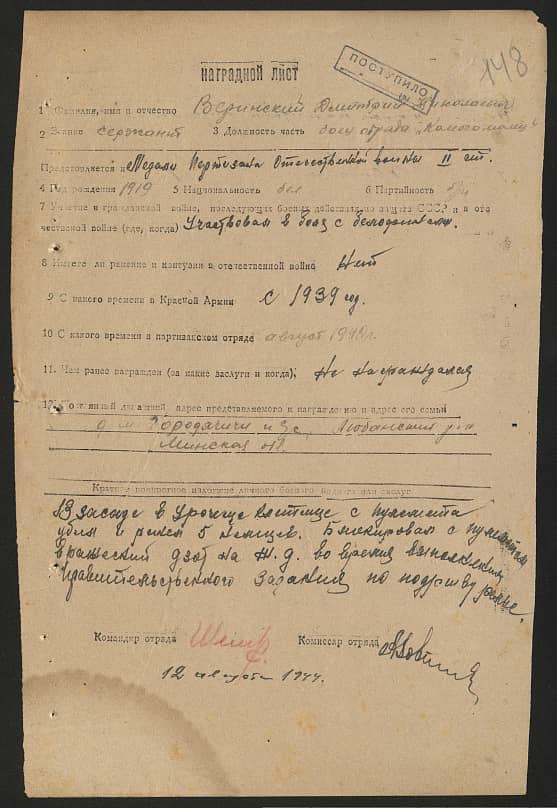 148
ПОСТУПИЛО
НАГРАДНОЙ ЛИСТ
1 Фамилия, имя и отчество Веринский Дмитрий Николаевич
2 Звание сержант 3 Должность часть боец отряда "Комсомолец"
Представляется к Медали Партизана Отечественной войны II ст.
4 Год рождения 1919 5 Национальность бел 6 Партийность б/п
7 Участие в гражданской войне, последующих боевых действиях по защите СССР и в оте
чественной войне (где, когда) Участвовал в боях с белофиннами.
8 Имеете ли ранения и контузии в отечественной войне Нет
9 С какого времени в Красной Армии с 1939 год.
10 С какого времени в партизанском отряде август 194 г.
11. Чем ранее награжден (за какие заслуги и когда), Не награждался
12 Постоянный домашний адрес представляемого к награждению и адрес его семьи
Городячичи Любанский р-н
Минская обл.
Краткое конкретное изложение личного боевого подвига или заслуг
В засаде в урочище с пулемета
убил и ранил 5 немцев. Блокировал с пулеметом
вражеский дзот на ж.д. во время выполнения
правительственного задания по подрыву рельс.
Командир отряда Комиссар отряда
12 августа 1944.